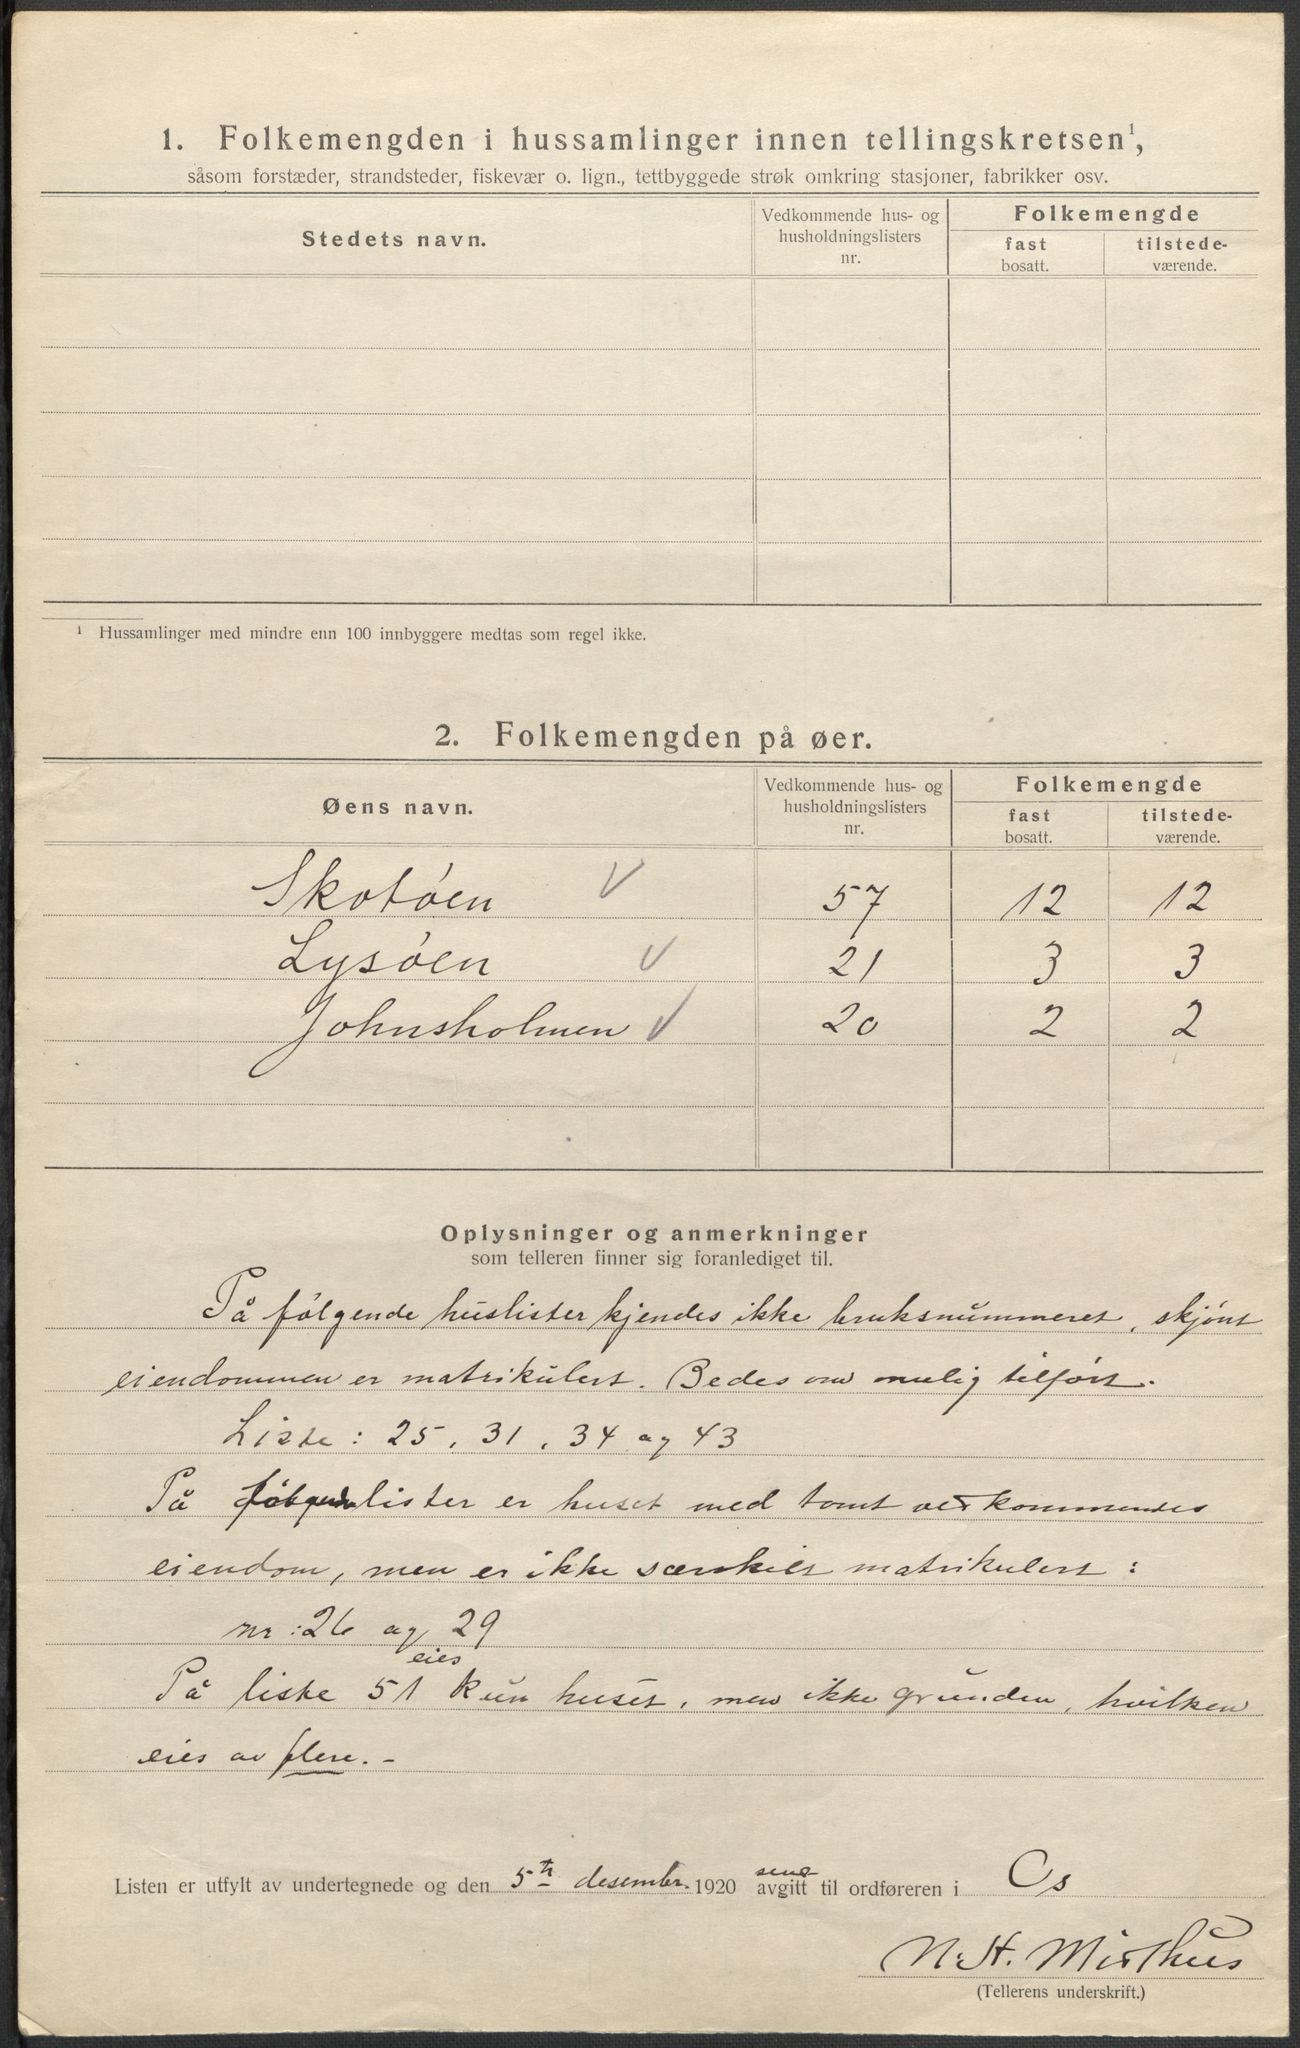 1. Folkemengden i hussamlinger innen tellingskretsen¹,
såsom forstæder, strandsteder, fiskevær o. lign., tettbyggede strøk omkring stasjoner, fabrikker osv.
Stedets navn. Vedkommende hus- og husholdningslisters nr. Folkemengde
fast bosatt. tilstede-værende.
¹ Hussamlinger med mindre enn 100 innbyggere medtas som regel ikke.
2. Folkemengden på øer.
Øens navn. Vedkommende hus- og husholdningslisters nr. Folkemengde
fast bosatt. tilstede-værende.
Skotøen V 57 12 12
Lysøen V 21 3 3
Johnsholmen V 20 2 2
Oplysninger og anmerkninger
som telleren finner sig foranlediget til.
På følgende huslister kjendes ikke bruksnummeret, skjønt
eiendommen er matrikulert. Bedes om mulig tilført.
Liste: 25, 31, 34 og 43
På følgende lister er huset med tomt vedkommendes
eiendom, men er ikke særskilt matrikulert:
nr: 26 og 29
eies
På liste 51 kun huset, men ikke grunden, hvilken
eies av flere. -
Listen er utfylt av undertegnede og den 5te desembr. 1920 avgitt til ordføreren i Os
send
(Tellerens underskrift.)